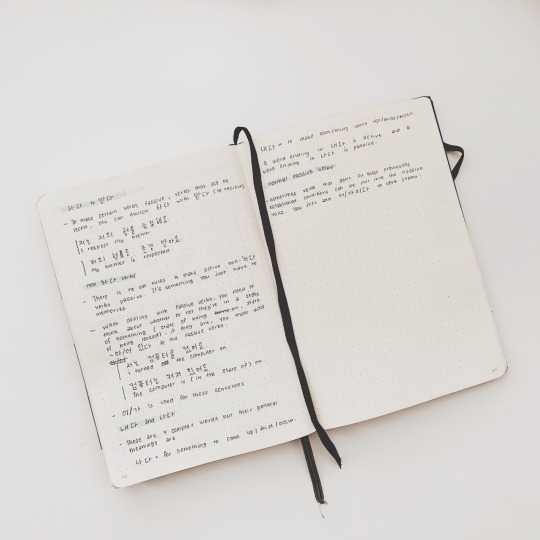 하다 → 받다
- To make certain verbs passive, verbs that act as
noun, you can switch 하다 with 받다 (to receive)
저는 저의 형을 존경해요
I respect my brother
저의 형은 존경 받아요
my brother is respected
non 하다 verbs
- There is no set rules to make active non-하다
verbs passive. It's something you just have to
memorize.
- When dealing with passive verbs, you need to
think about whether or not they're in a state
of something (state of being on, state
of being locked). If they are, you must add
-아/어 있다 to the passive verbs
저는 컴퓨터를 켰어요
I turned the computer on
컴퓨터는 켜져 있어요
The computer is (in the state of) on.
- 이/가 is used for these sentences
내다 and 나다
- These are complex words but their general
meanings are
나다 = for something to come up/arise/occur
내다 = to make something come up/arise/occur.
A word ending in 내다 is active and a
word ending in 나다 is passive.
normal passive verbs
- sometimes verbs that don't fit these previously
established conditions can be put into the passive
voice. You just add 아/어지다 to verb stems.